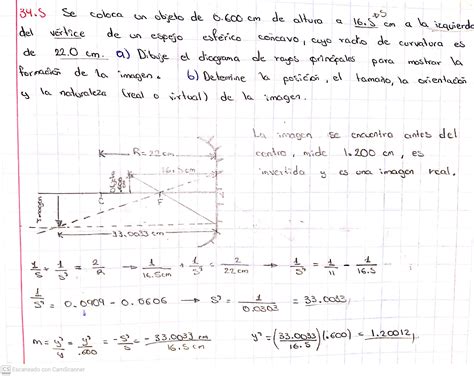 34.5 Se coloca un objeto de 0.600 cm de altura a 16.5 cm a la izquierda
del vértice de un espejo esférico concavo, cuyo radio de curvatura es
de 22.0 cm. a) Dibuje el diagrama de rayos principales para mostrar la
formación de la imagen. b) Determine la posición, el tamaño, la orientación
y la naturaleza (real o virtual) de la imagen.
La imagen se encuentra antes del
centro, mide 1.200 cm, es
invertida y es una imagen real.
R=22cm
16.5cm
Objeto
C
F
Imagen
33.0033 cm
1/S + 1/S' = 2/R → 1/16.5cm + 1/S' = 2/22cm → 1/S' = 1/11 - 1/16.5
1/S' = 0.0909 - 0.0606 → S' = 1/0.0303 = 33.0033
m = y'/y = y'/.600 = -S'/S = -33.0033 cm/16.5 cm y' = (33.0033/16.5)(.600) = 1.20012
CS Escaneado con CamScanner